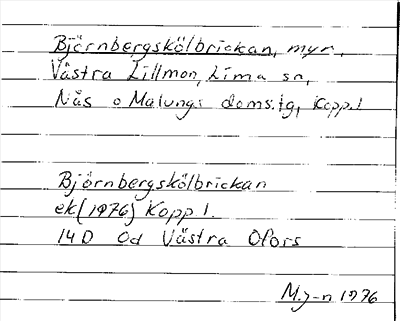 Björnbergskölbrickan, myr,
Västra Lillmon, Lima sn,
Nås o Malungs doms.tg, Kopp.l
Björnbergskölbrickan
ek (1976) Kopp l.
14D 0d Västra Ofors
M.J-n 1976